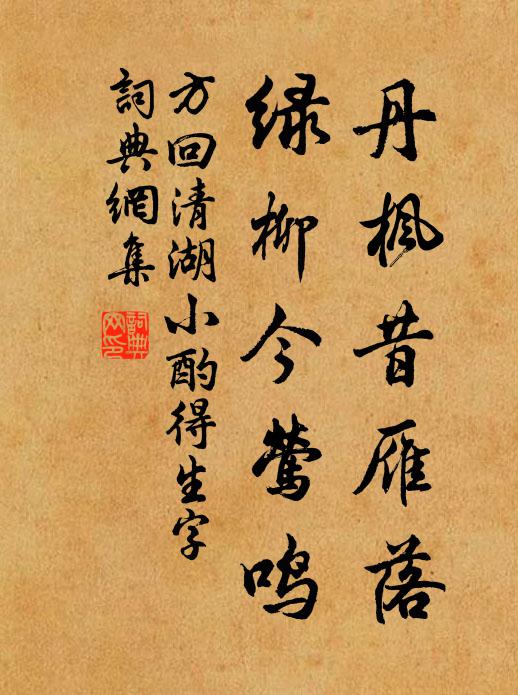 丹枫昔雁落
绿柳今莺鸣
方回清湖小酌得生字
詞典網集
詞典
网印